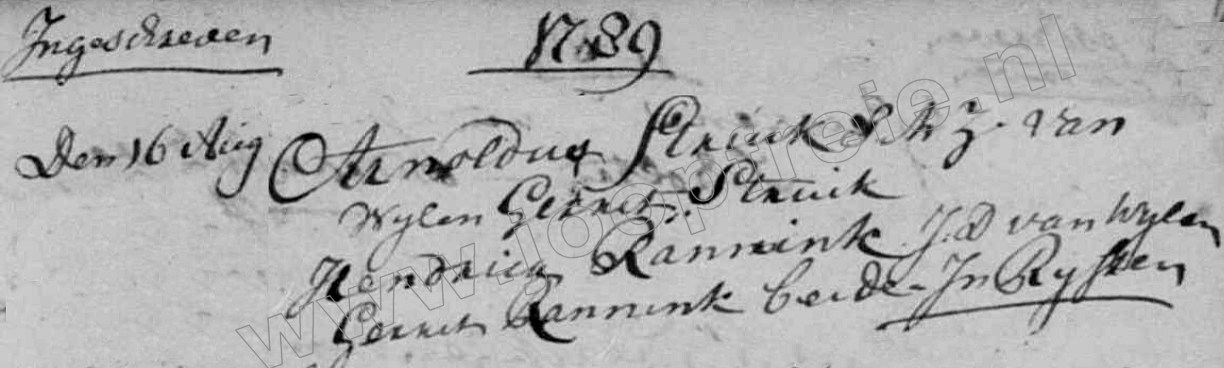 Ingeschreven
1789
Den 16 Aug Arnoldus Struik z. van
Wylen Gerrit Struik
Hendrica Rannink J.D van Wylen
Gerrit Rannink beide In Ryssen
www.jooptreie.nl